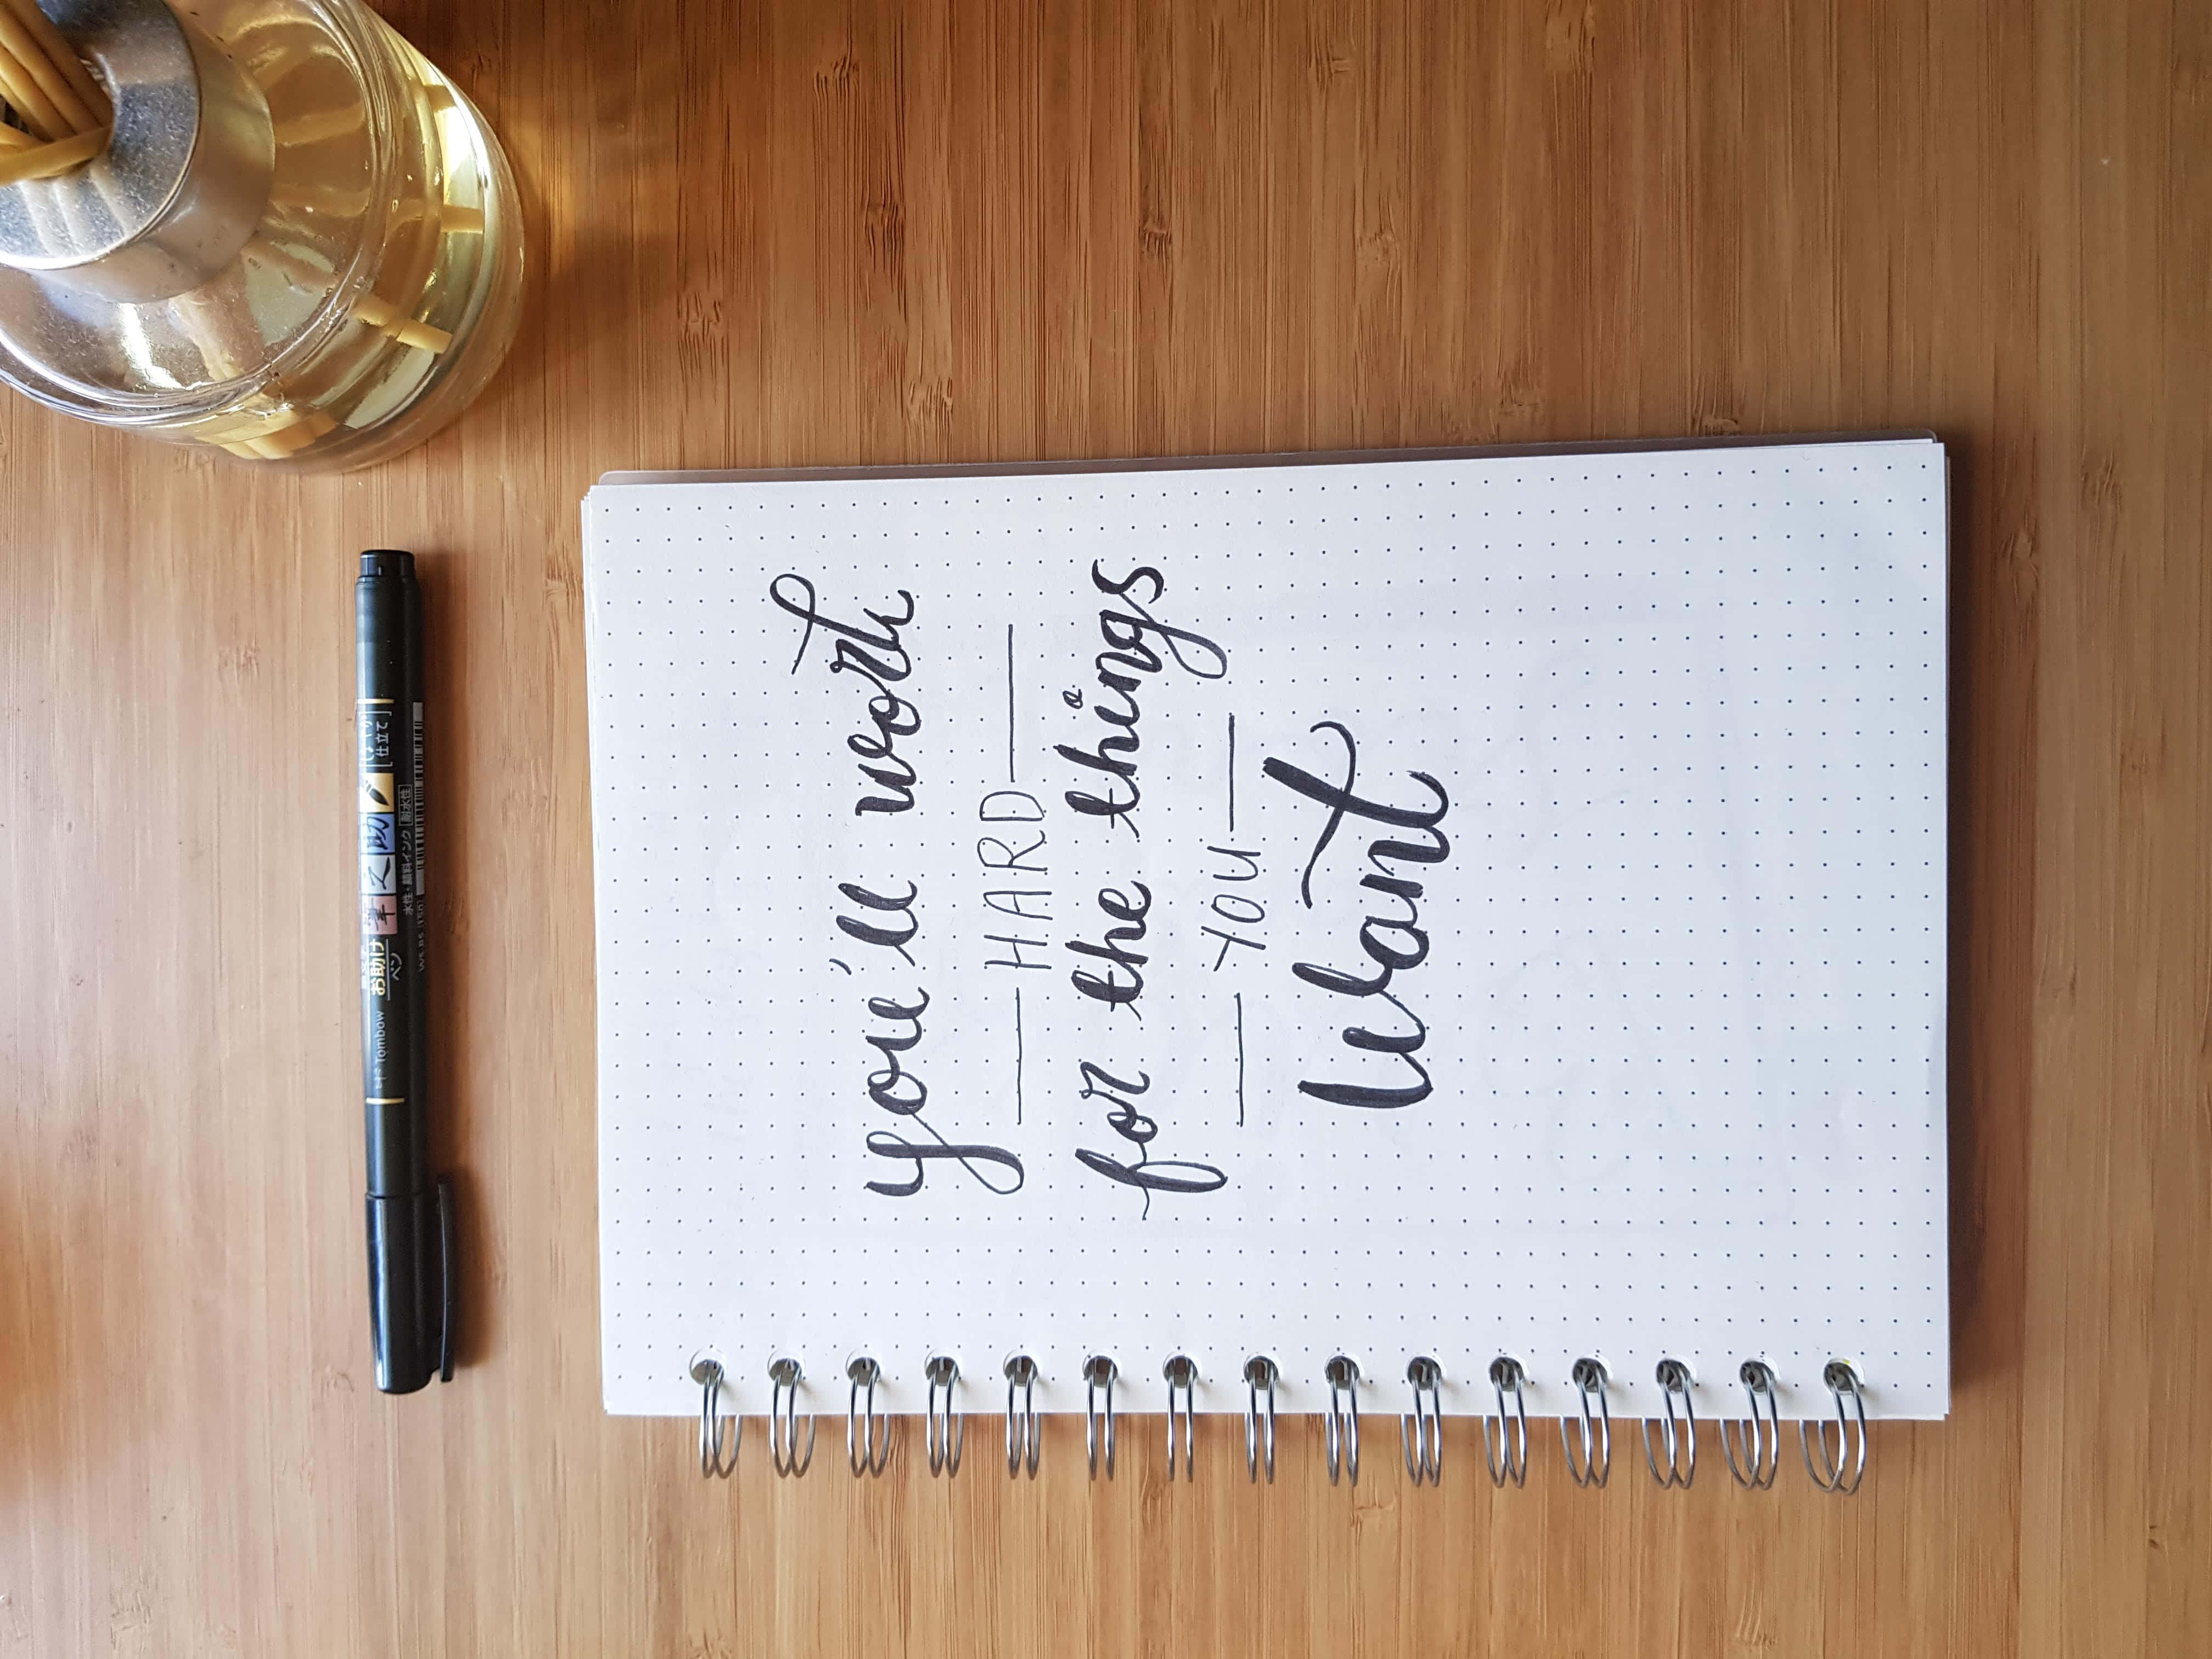 you'll work
HARD
for the things
YOU
want
Tombow
お助け
ペン
筆之助
仕立て
水性・顔料インク [耐水性]